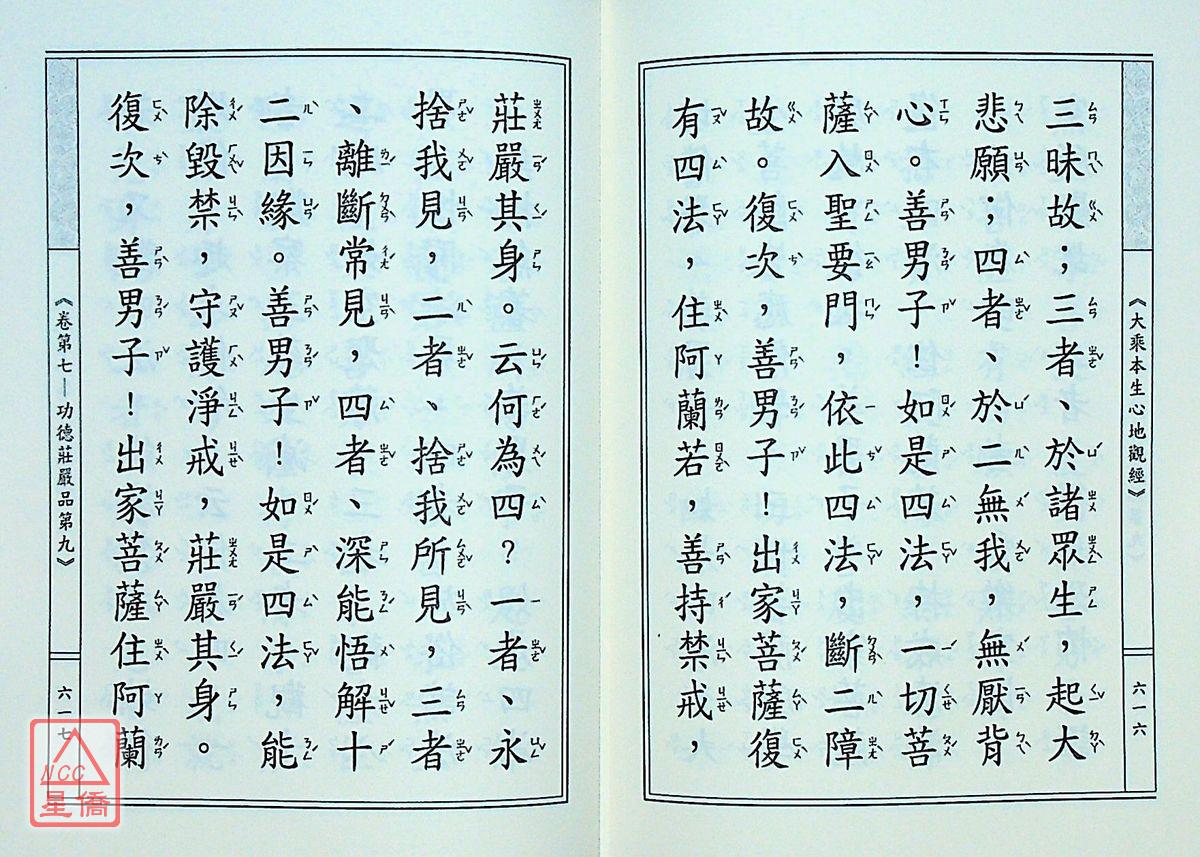 《大乘本生心地觀經》
六一六
三昧故，三者、於諸眾生，起大
悲願；四者、於二無我，無厭背
心。善男子！如是四法，一切菩
薩入聖要門，依此四法，斷二障
故。復次，善男子！出家菩薩復
有四法，住阿蘭若，善持禁戒，
莊嚴其身。云何為四？一者、永
捨我見，二者、捨我所見，三者
、離斷常見，四者、深能悟解十
二因緣。善男子！如是四法，能
除毀禁，守護淨戒，莊嚴其身。
復次，善男子！出家菩薩住阿蘭
《卷第七—功德莊嚴品第九》
六一七
NCC
星僑